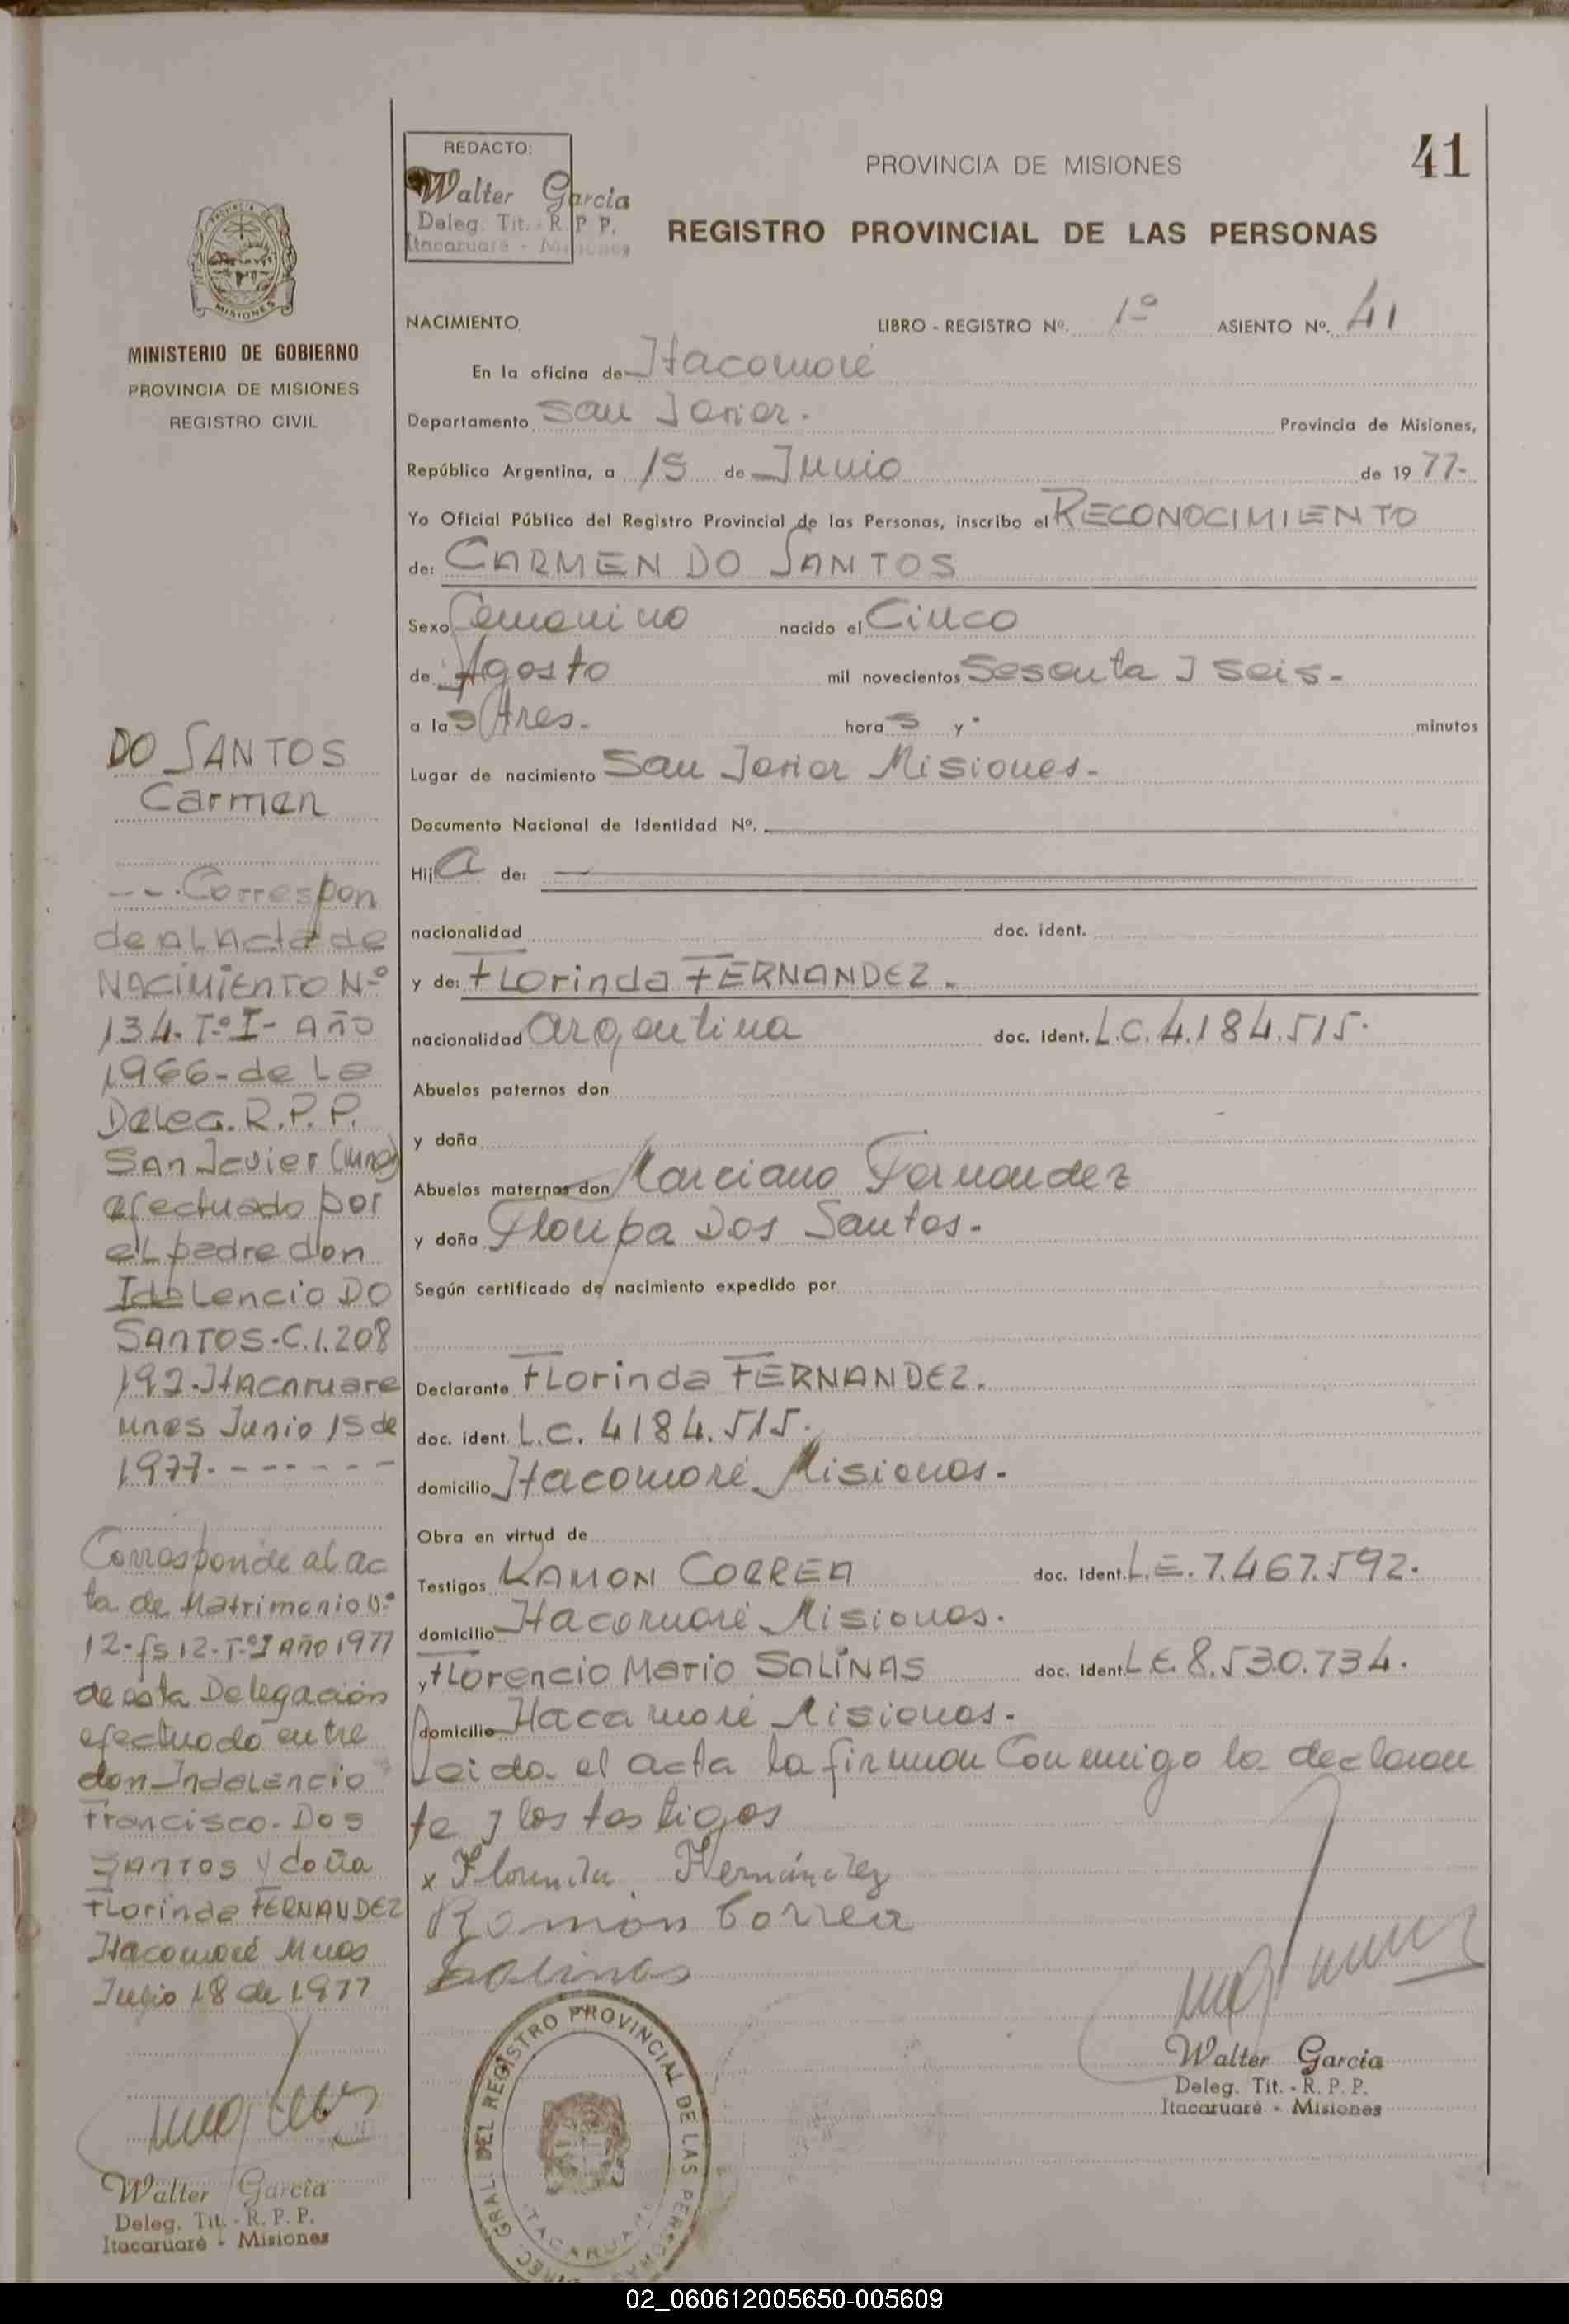 REDACTO:
Walter Garcia
Deleg. Tit. R. P. P.
Itacaruaré - Misiones
PROVINCIA DE MISIONES
41
REGISTRO PROVINCIAL DE LAS PERSONAS
MISIONES
MINISTERIO DE GOBIERNO
PROVINCIA DE MISIONES
REGISTRO CIVIL
DO SANTOS
Carmen
---Correspon
de AL Acta de
NACIMIENTO Nº
134. Tº I- Año
1966- de La
Deleg. R. P. P.
San Javier (Mnes)
efectuado por
el padre don
Idalencio DO
SANTOS. C.I. 208
192. Itacaruare
Mnes Junio 15 de
1977. - - - - - -
Corresponde al ac
ta de Matrimonio Nº
12. fs 12. Tº I Año 1977
de esta Delegación
efectuado entre
don Indalencio
Francisco. Dos
Santos y doña
Florinda FERNANDEZ
Itacaruaré Mnes
Julio 18 de 1977
Walter Garcia
Deleg. Tit. - R. P. P.
Itacaruaré - Misiones
NACIMIENTO LIBRO - REGISTRO Nº. 1º ASIENTO Nº. 41
En la oficina de Itacaruaré
Departamento San Javier. Provincia de Misiones,
República Argentina, a 15 de Junio de 1977-
Yo Oficial Público del Registro Provincial de las Personas, inscribo el RECONOCIMIENTO
de: CARMEN DO SANTOS
Sexo Femenino nacido el Cinco
de Agosto mil novecientos Sesenta y seis-
a las tres- horas y minutos
Lugar de nacimiento San Javier Misiones-
Documento Nacional de Identidad Nº.
Hija de:
nacionalidad doc. ident.
y de: FLorinda FERNANDEZ.
nacionalidad argentina doc. ident. L.C. 4.184.515.
Abuelos paternos don
y doña
Abuelos maternos don Marciano Fernandez
y doña Dos Santos-
Según certificado de nacimiento expedido por
Declarante FLorinda FERNANDEZ.
doc. ident. L.C. 4184.515.
domicilio Itacaruaré Misiones-
Obra en virtud de
Testigos RAMON CORREA doc. Ident. L.E. 7.467.592.
domicilio Itacaruaré Misiones.
y FLorencio Mario SALINAS doc. Ident. L.E. 8.530.734.
domicilio Itacaruaré Misiones.
Leida el acta la firman Conmigo la declaran
te y los testigos
x Florinda Fernández
Ramón Correa
Salinas
Walter Garcia
Deleg. Tit. - R. P. P.
Itacaruaré - Misiones
DIREC. GRAL. DEL REGISTRO PROVINCIAL DE LAS PERSONAS
ITACARUARE
02_060612005650-005609